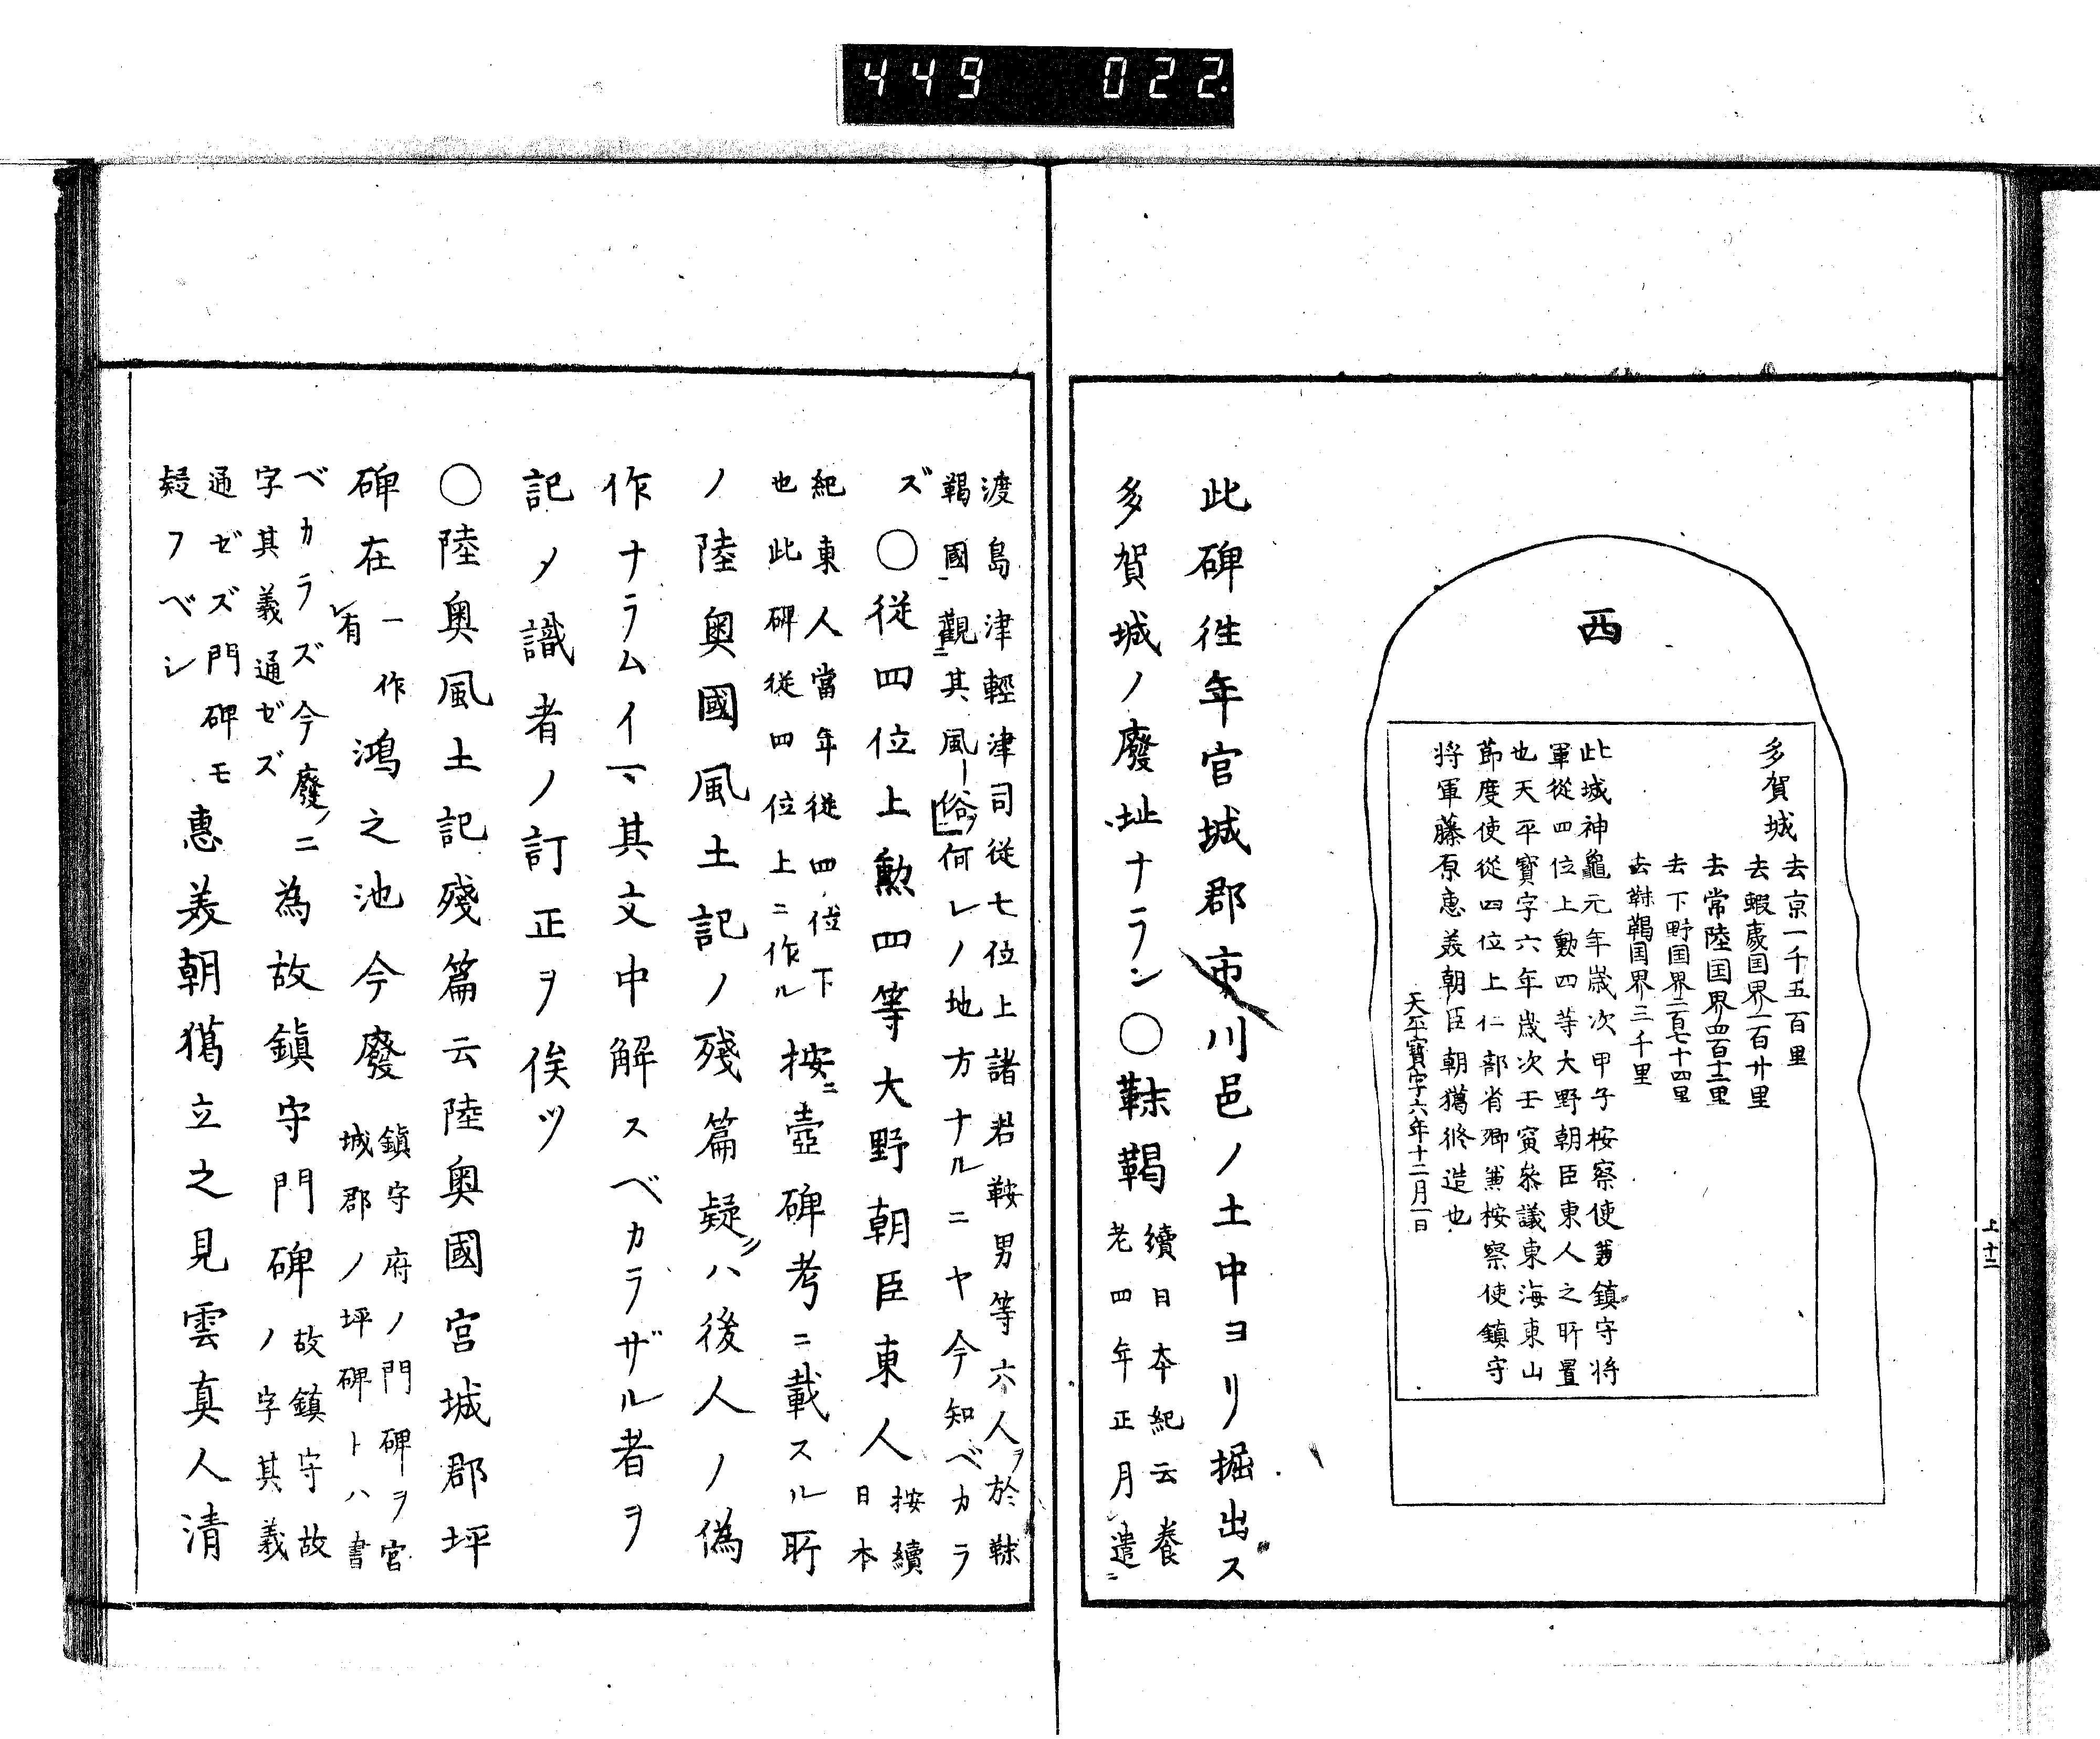 449 022.
上十二
西
多賀城
去京一千五百里
去蝦夷国界一百廿里
去常陸国界四百十二里
去下野国界二百七十四里
去靺鞨国界三千里
此城神龜元年歳次甲子桉察使兼鎮守将
軍從四位上勲四等大野朝臣東人之所置
也天平寶字六年歳次壬寅叅議東海東山
節度使從四位上仁部省卿兼桉察使鎮守
将軍藤原恵美朝臣朝獦修造也
天平寶字六年十二月一日
此碑徃年官城郡市川邑ノ土中ヨリ掘出ス
多賀城ノ廢址ナラン〇靺鞨
續日本紀云養
老四年正月遣ニ
渡島津輕津司從七位上諸君鞍男等六人ヲ於靺
鞨國ニ觀其風俗ヲ何レノ地方ナルニヤ今知ベカラ
ズ〇從四位上勲四等大野朝臣東人
按續
日本
紀東人當年從四位下
也此碑從四位上ニ作ル
按ニ壺碑考ニ載スル所
ノ陸奥國風土記ノ殘篇疑ハ後人ノ偽
作ナラムイ其文中解スベカラザル者ヲ
記メ識者ノ訂正ヲ俟ツ
〇陸奥風土記殘篇云陸奥國宮城郡坪
碑在
一作
有
鴻之池今廢
鎮守府ノ門碑ヲ宮
城郡ノ坪碑トハ書
ベカラズ今廢ノニ
字其義通ゼズ
為故鎮守門碑
故鎮守故
ノ字其義
通ゼズ門碑モ
疑フベシ
惠美朝獦立之見雲真人清